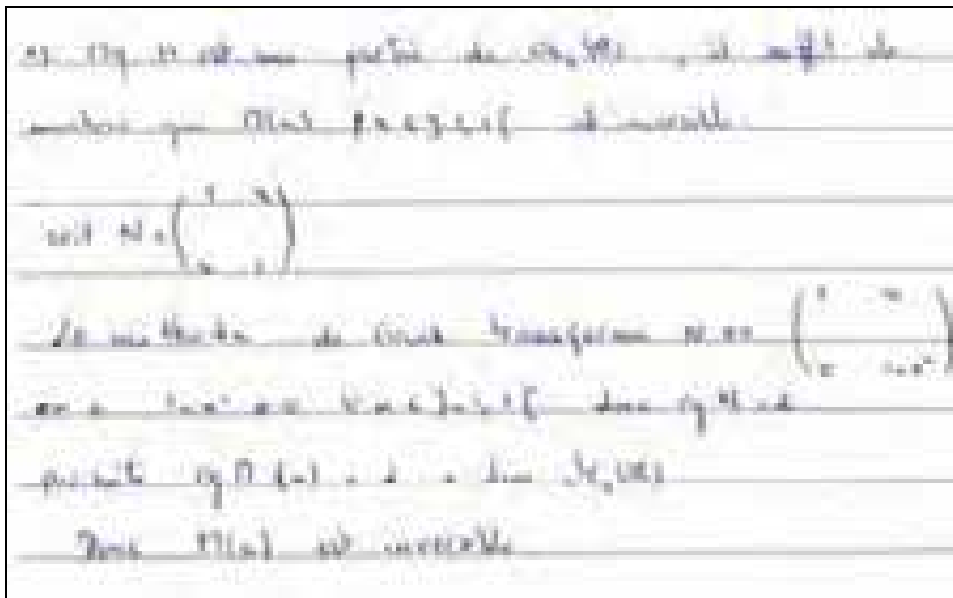 Mq H est une partie de , il suffit de
montrer que M(x) x ∈ ]-1,1[ est inversible
soit N = ( 1 x
x 1 )
La méthode de Gauss transforme N en ( 1 x
0 1-x² )
on a 1-x² ≠ 0 ∀ x ∈ ]-1,1[ donc rg N = 2
par suite rg M(x) = 2 = dim
Donc M(x) est inversible